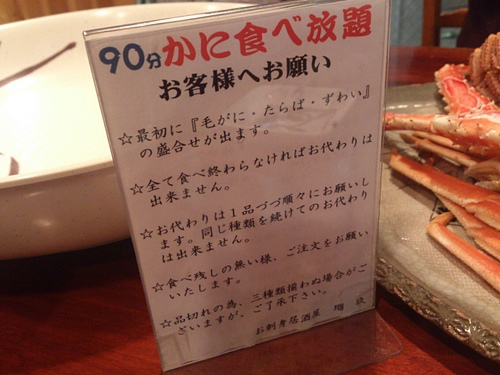 90分かに食べ放題
お客様へお願い
☆最初に『毛がに・たらば・ずわい』
の盛合せが出ます。
☆全て食べ終わらなければお代わりは
出来ません。
☆お代わりは１品づづ順々にお願いし
ます。同じ種類を続けてのお代わり
は出来ません。
☆食べ残しの無い様、ご注文をお願い
いたします。
☆品切れの為、三種類揃わぬ場合がご
ざいますが、ご了承下さい。
お刺身居酒屋